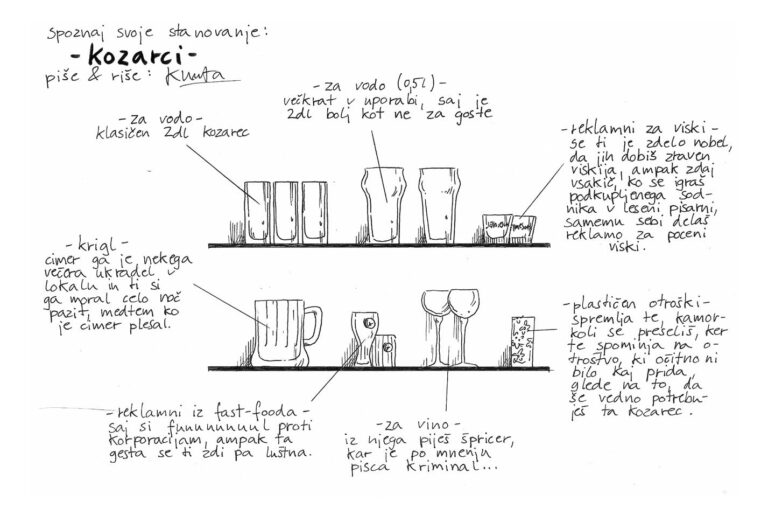 spoznaj svoje stanovanje:
-kozarci-
piše & riše: Kunta
-za vodo-
klasičen 2dl kozarec
-za vodo (0,5l)-
večkrat v uporabi, saj je
2dl bolj kot ne za goste
-reklamni za viski-
še ti je zdelo nobel,
da jih dobiš zraven
viskija, ampak zdaj
vsakič, ko se igraš
podkupljenega sod-
nika v leseni pisarni,
samemu sebi delaš
reklamo za poceni
viski.
-krigl-
cimer ga je nekega
večera ukradel v
lokalu in ti si
ga moral celo noč
pazit, medtem ko
je cimer plesal.
-plastičen otroški-
spremlja te, kamor-
koli se preseliš, ker
te spominja na o-
troštvo, ki očitno ni
bilo kaj prida,
glede na to, da
še vedno potrebu-
ješ ta kozarec.
-reklamni iz fast-fooda-
saj si fuuuuuuuul proti
korporacijam, ampak ta
gesta se ti zdi pa luštna.
-za vino-
iz njega piješ špricer,
kar je po mnenju
pisca kriminal...